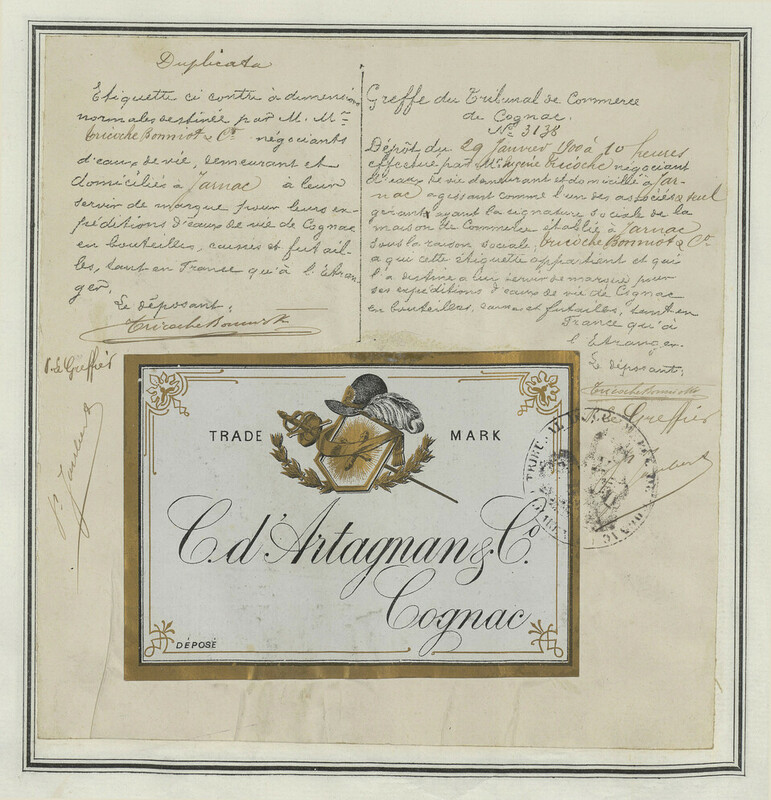 Duplicata
Etiquette ci contre à dimensions
normales destinée par M. Mrs
Tricoche Bonniot & Cie négociants
d'eaux de vie, demeurant et
domiciliés à Jarnac à leur
servir de marque pour leurs ex-
péditions d'eaux de vie de Cognac
en bouteilles, caisses et futail-
les, tant en France qu'à l'étran-
ger.
Le déposant:
Tricoche Bonniot &
P. le Greffier
Joubert
Greffe du Tribunal de Commerce
de Cognac.
No 3138
Dépôt du 29 Janvier 1900 à 10 heures
effectué par Mr Tricoche négociant
d'eaux de vie demeurant et domicilié à Jar-
nac agissant comme l'un des associés & seul
gérant ayant la signature sociale de la
maison de Commerce établie à Jarnac
sous la raison sociale, Tricoche Bonniot & Cie
à qui cette étiquette appartient et qui
l'a destinée à lui servir de marque pour
ses expéditions d'eaux de vie de Cognac
en bouteilles, caisses et futailles, tant en
France qu'à
l'étranger.
Le déposant:
Tricoche Bonniot &
Greffier
Joubert
TRADE MARK
C. d'Artagnan & Co.
Cognac
DÉPOSÉ